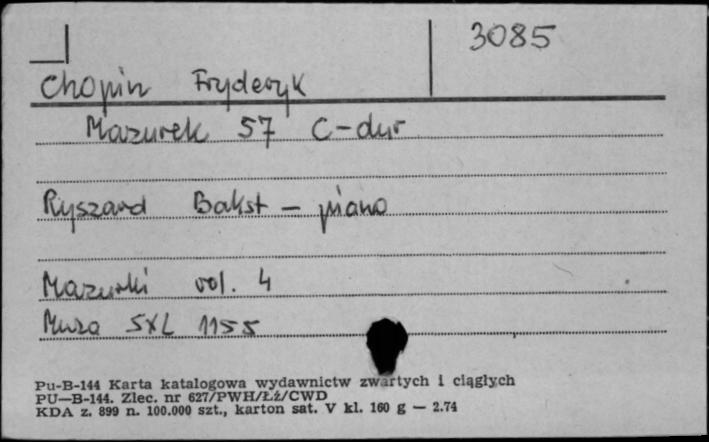 3085
Chopin Fryderyk
Mazurek 57 C-dur
Ryszard Bakst - piano
Mazurki vol. 4
Muza SXL 1155
Pu-B-144 Karta katalogowa wydawnictw zwartych i ciągłych
PU—B-144. Zlec. nr 627/PWH/Łż/CWD
KDA z. 899 n. 100.000 szt., karton sat. V kl. 160 g — 2.74